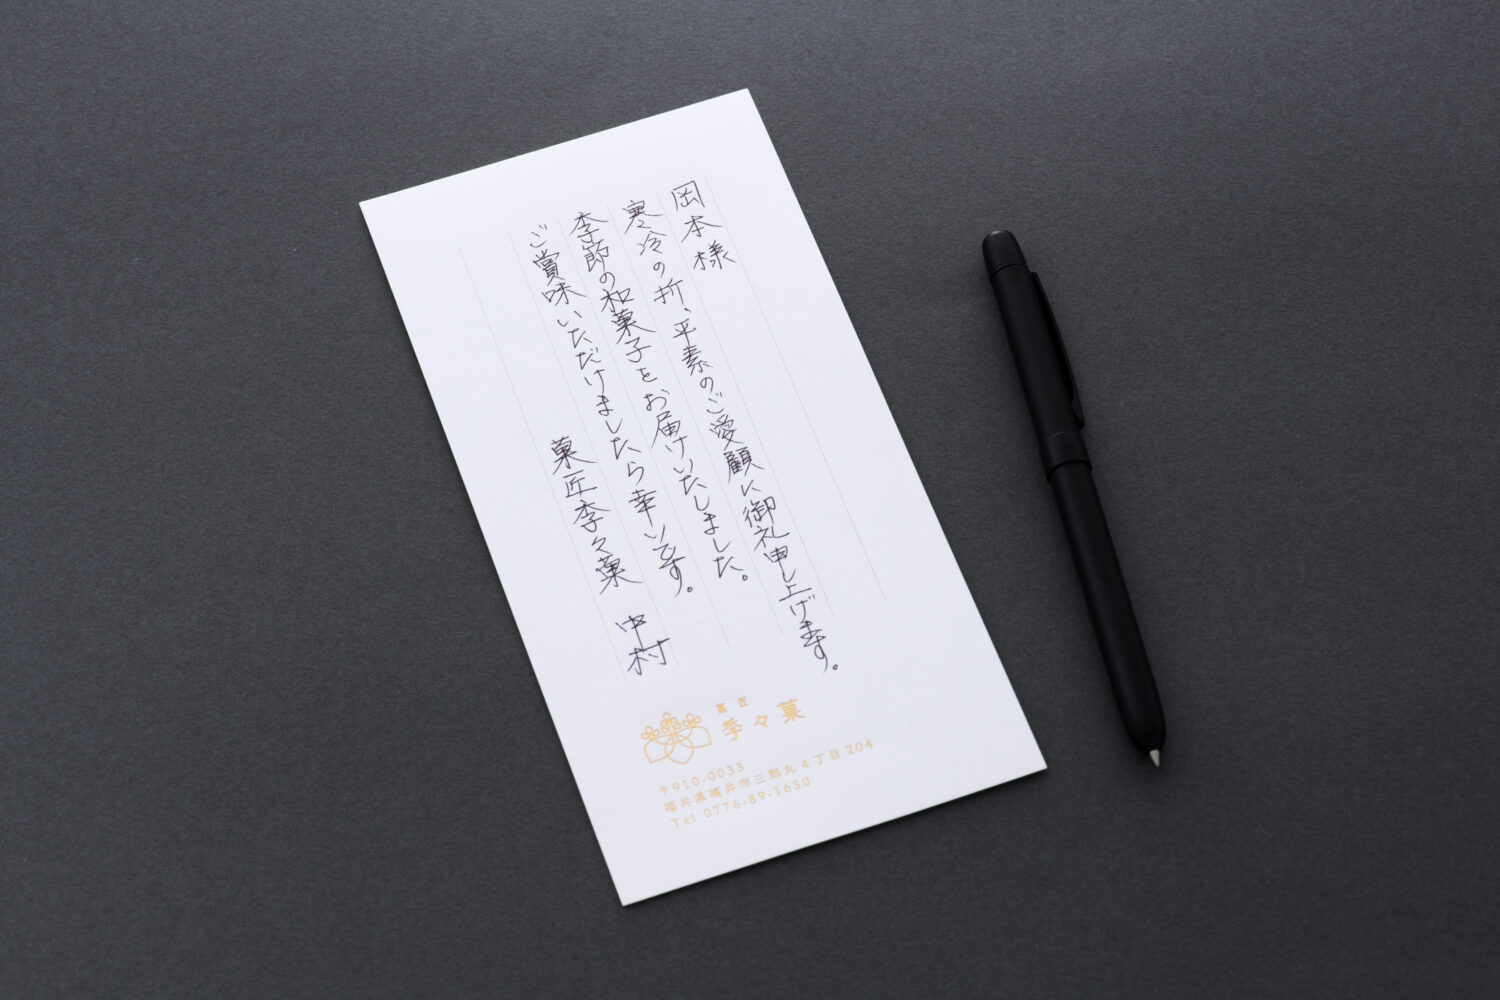 岡本様
寒冷の折、平素のご愛顧に御礼申し上げます。
季節の和菓子をお届けいたしました。
ご賞味いただけましたら幸いです。
菓匠季々菓 中村
菓匠
季々菓
〒910-0033
福井県福井市三郎丸4丁目204
Tel 0776-89-1650